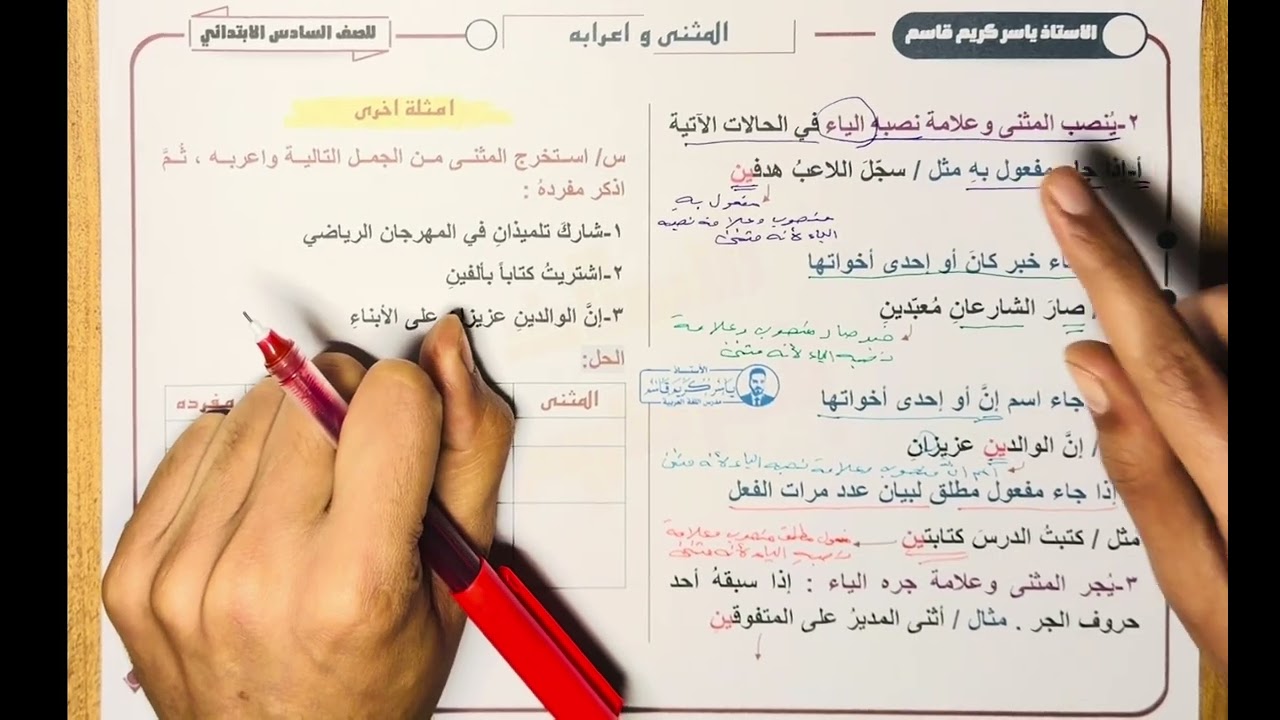 الاستاذ ياسر كريم قاسم
المثنى و اعرابه
للصف السادس الابتدائي
٢-يُنصب المثنى وعلامة نصبه الياء في الحالات الآتية
أ-إذا جاء مفعول بهِ مثل / سجّلَ اللاعبُ هدفين
مفعول بهِ
منصوب وعلامة نصبه
الياء لأنه مثنى
خبر كانَ أو إحدى أخواتها
/ صارَ الشارعانِ مُعبّدينِ
خبر صار منصوب وعلامة
نصبه الياء لأنه مثنى
الأستاذ
ياسر كريم قاسم
مدرس اللغة العربية
جاء اسم إنَّ أو إحدى أخواتها
/ إنَّ الوالدينِ عزيزانِ
اسم إنّ منصوب وعلامة نصبه الياء لأنه مثنى
إذا جاء مفعول مطلق لبيان عدد مرات الفعل
مثل / كتبتُ الدرسَ كتابتين
مفعول مطلق منصوب وعلامة
نصبه الياء لأنه مثنى
٣-يُجر المثنى وعلامة جره الياء : إذا سبقهُ أحد
حروف الجر . مثال / أثنى المديرُ على المتفوقين
امثلة اخرى
س/ استخرج المثنى من الجمل التالية واعربه ، ثُمَّ
اذكر مفردهُ :
١-شاركَ تلميذانِ في المهرجان الرياضي
٢-اشتريتُ كتاباً بألفينِ
٣-إنَّ الوالدينِ عزيزان على الأبناءِ
الحل:
المثنى
مفرده